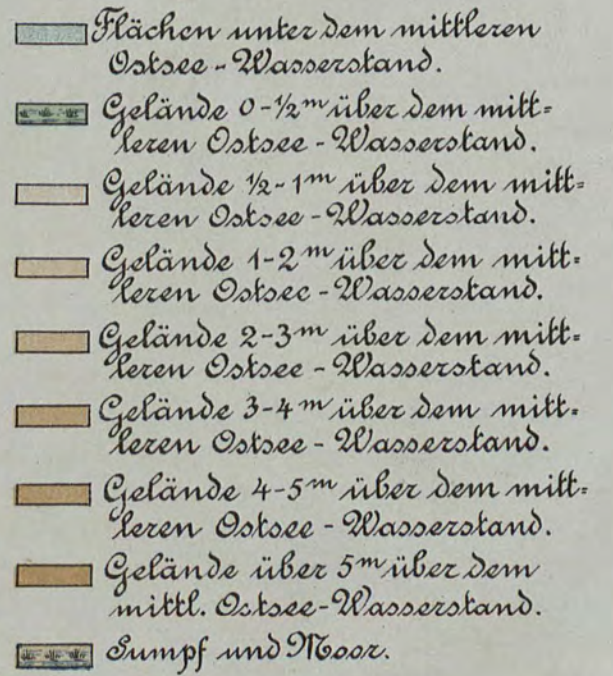 Flächen unter dem mittleren
Ostsee - Wasserstand.
Gelände 0-½ m über dem mitt=
leren Ostsee - Wasserstand.
Gelände ½-1 m über dem mitt=
leren Ostsee - Wasserstand.
Gelände 1-2 m über dem mitt=
leren Ostsee - Wasserstand.
Gelände 2-3 m über dem mitt=
leren Ostsee - Wasserstand.
Gelände 3-4 m über dem mitt=
leren Ostsee - Wasserstand.
Gelände 4-5 m über dem mitt=
leren Ostsee - Wasserstand.
Gelände über 5 m über dem
mittl. Ostsee-Wasserstand.
Sumpf und Moor.